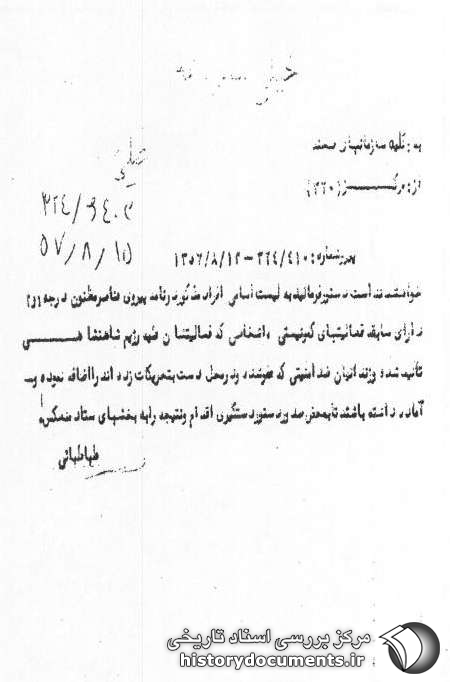 خیلی
به : کلیه سازمانهای
تلگرا
از : مرکز (۳۶۰)
۳۲۴/۹۴۰۲
۵۷/۸/۱۵
پیرو شماره : ۳۲۴/۴۱۰ – ۱۳۵۷/۸/۱۲
خواهشمند است دستور فرمائید به لیست اسامی افراد مذکور در نامه پیروی عناصر مظنون درجه (۲)
دارای سابقه فعالیتهای کمونیستی و اشخاصی که فعالیتشان علیه رژیم شاهنشاهی
تأئید شده و زندانیان ضد امنیتی که عفو شده و در محل دست بتحریکات زده اند را اضافه نموده و
آمادہ داشته باشند تا بمحض صدور دستور دستگیری اقدام و نتیجه را به بخشهای ستاد منعکس
طباطبائی
مرکز بررسی اسناد تاریخی
historydocuments.ir